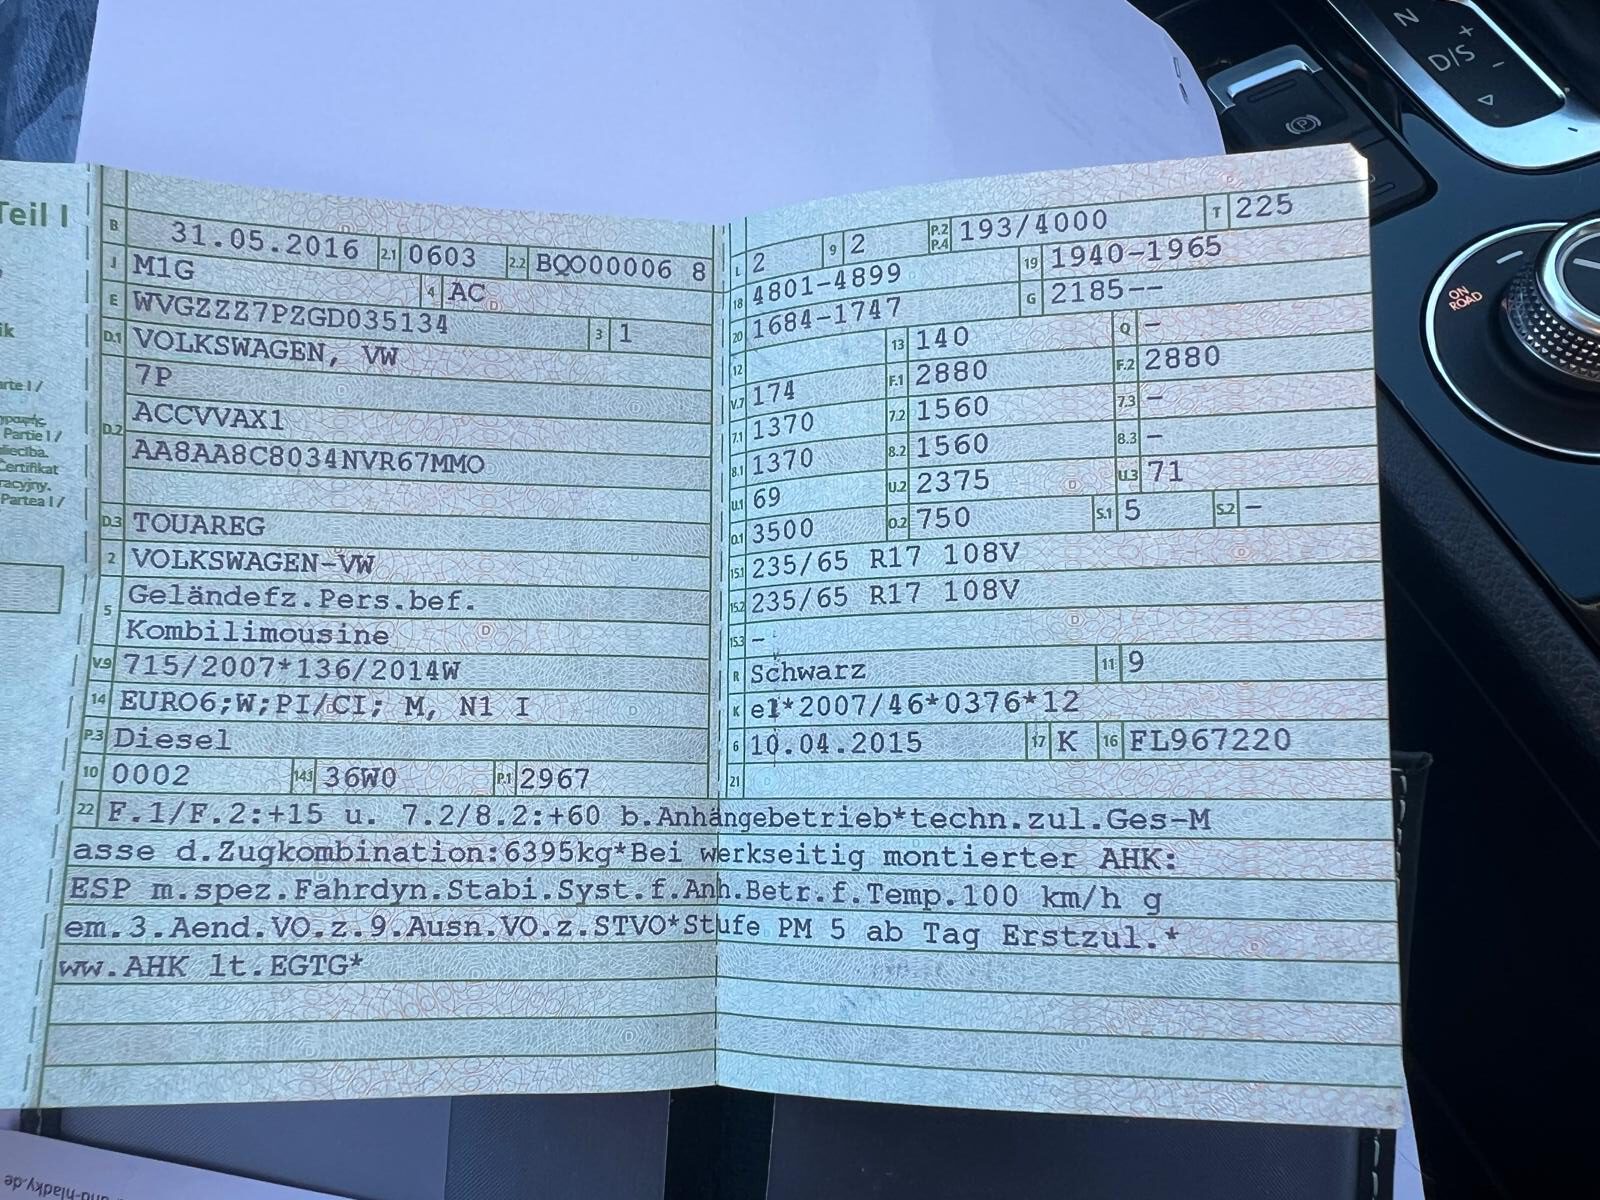 Teil I
B 31.05.2016 2.1 0603 2.2 BQO00006 8
J M1G 4 AC
E WVGZZZ7PZGD035134 3 1
D.1 VOLKSWAGEN, VW
7P
D.2 ACCVVAX1
AA8AA8C8034NVR67MMO
D.3 TOUAREG
2 VOLKSWAGEN-VW
5 Geländefz.Pers.bef.
Kombilimousine
V.9 715/2007*136/2014W
14 EURO6;W;PI/CI; M, N1 I
P.3 Diesel
10 0002 14.1 36W0 P.1 2967
L 2 9 2 P.2 P.4 193/4000 T 225
18 4801-4899 19 1940-1965
20 1684-1747 G 2185--
12 13 140 Q -
V.7 174 F.1 2880 F.2 2880
7.1 1370 7.2 1560 7.3 -
8.1 1370 8.2 1560 8.3 -
U.1 69 U.2 2375 U.3 71
O.1 3500 O.2 750 S.1 5 S.2 -
15.1 235/65 R17 108V
15.2 235/65 R17 108V
15.3 -
R Schwarz 11 9
K e1*2007/46*0376*12
6 10.04.2015 17 K 16 FL967220
21
22 F.1/F.2:+15 u. 7.2/8.2:+60 b.Anhängebetrieb*techn.zul.Ges-M
asse d.Zugkombination:6395kg*Bei werkseitig montierter AHK:
ESP m.spez.Fahrdyn.Stabi.Syst.f.Anh.Betr.f.Temp.100 km/h g
em.3.Aend.VO.z.9.Ausn.VO.z.STVO*Stufe PM 5 ab Tag Erstzul.*
ww.AHK lt.EGTG*
arte I /
Partie I /
Certifikat
racyjny.
Partea I /
N
D/S
+
-
P
ON
ROAD
hladky.de